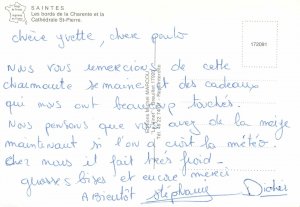 SAINTES
Les bords de la Charente et la
Cathédrale St-Pierre.
172081
chère yvette, chere paulo
Nous vous remercions de cette
charmante semaine et des cadeaux
qui nous ont beaucoup touchés.
Nous pensons que vous avez de la neige
maintenant si l'on d'croit la météo.
Chez nous il fait très froid.
grosses bises et encore merci
A Bientôt Stéphanie Didier